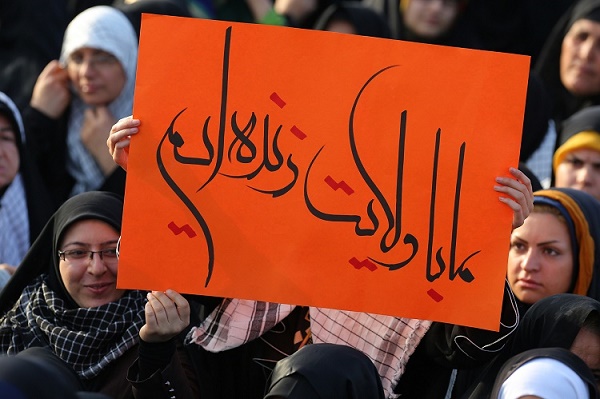 ما با ولایت زنده ایم